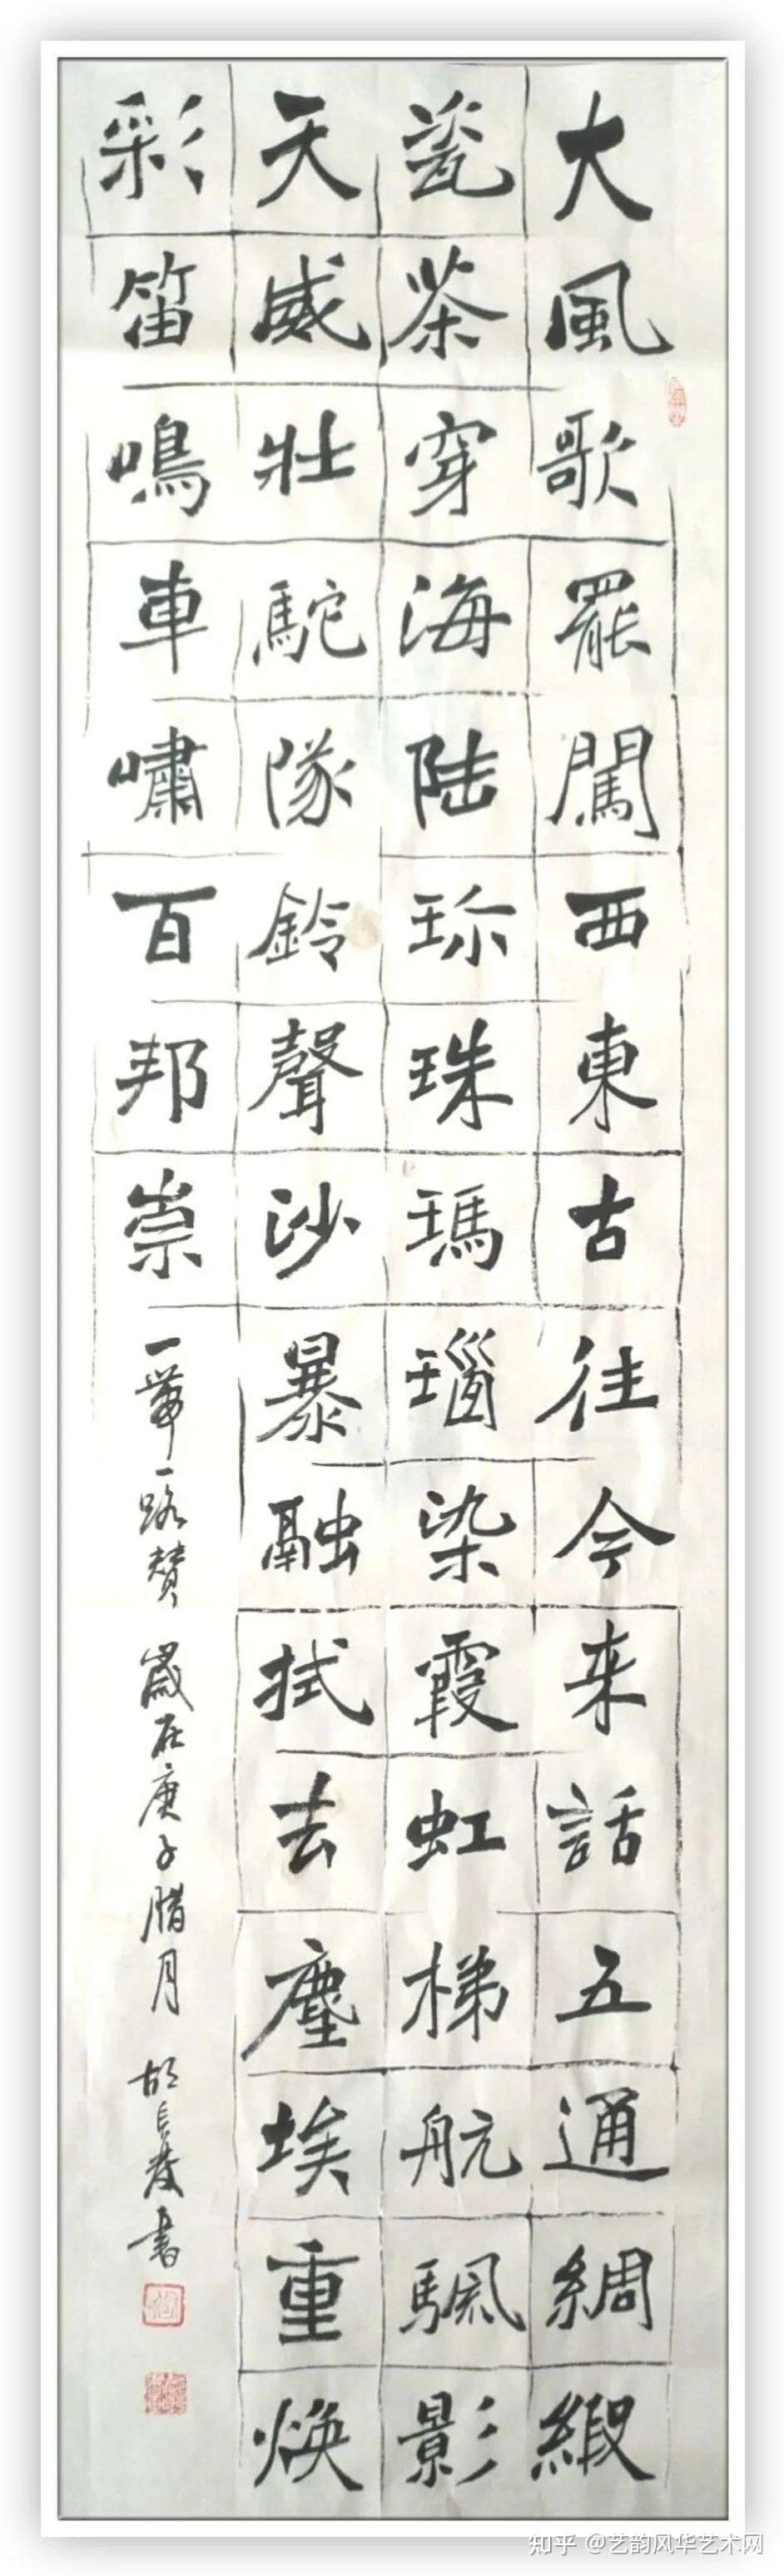 大風歌罷闖西東古往今来話五通綢緞
瓷茶穿海陆珎珠瑪瑙染霞虹梯航颿影
天威壯駝隊鈴聲沙暴融拭去塵埃重焕
彩笛鳴車嘯百邦崇
一帶一路贊 歲在庚子腊月 胡長書
知乎 @艺韵风华艺术网